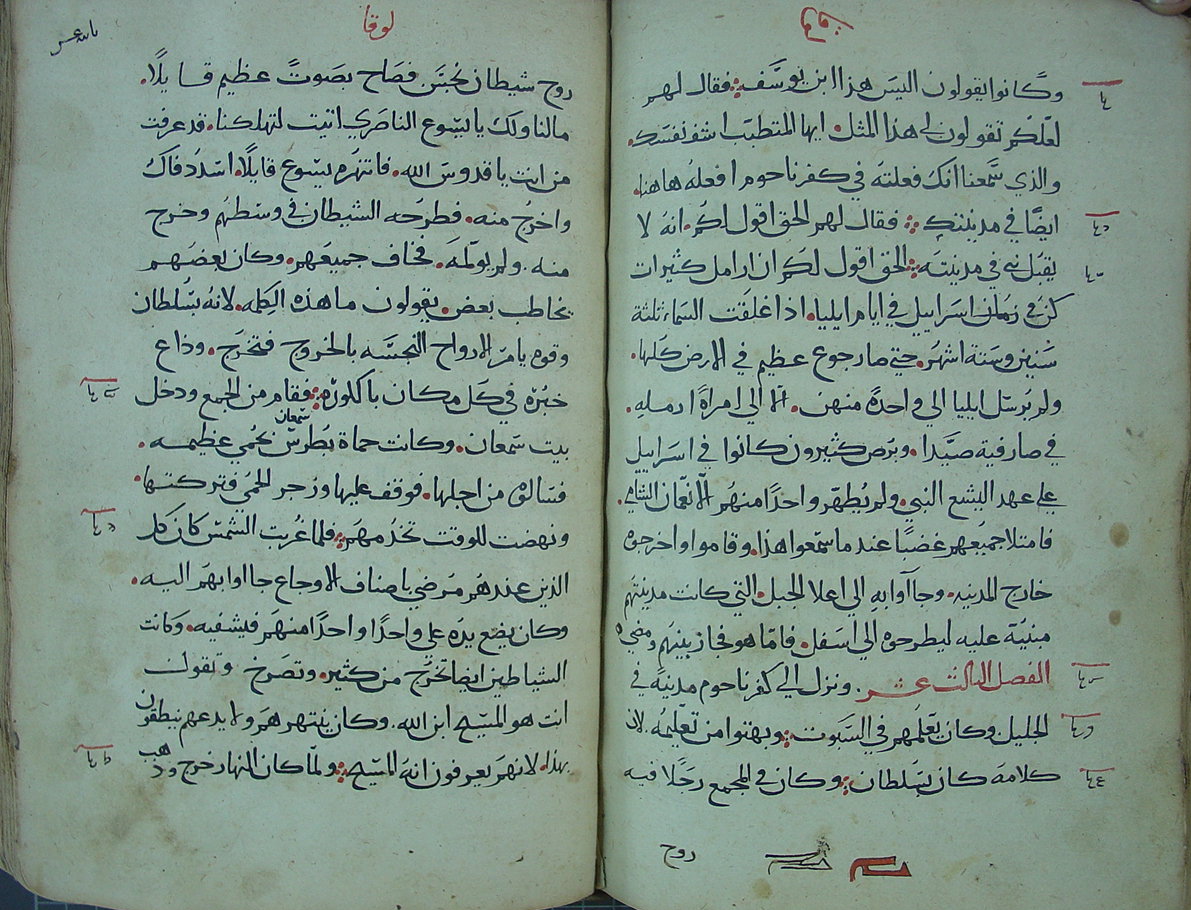 لوقا
وكانوا يقولون اليس هذا ابن يوسف فقال لهم
لعلكم تقولون لي هذا المثل ايها المتطبب اشف نفسك
والذي سمعنا انك فعلته في كفرناحوم افعله هاهنا
ايضًا في مدينتك فقال لهم الحق اقول لكم انه لا
يقبل نبي في مدينته الحق اقول لكم ان ارامل كثيرات
كن في زمان اسراييل في ايام ايليا اذا غلقت السماء ثلثة
سنين وستة اشهر حتي صار جوع عظيم في الارض كلها
ولم يرسل ايليا الي واحدة منهن الا الي امراة ارمله
في صارفية صيدا وبرص كثيرون كانوا في اسراييل
علي عهد اليشع النبي ولم يطهر واحدًا منهم الا نعمان الشامي
فامتلا جميعهم غضبًا عند ما سمعوا هذا وقاموا واخرجوه
خارج المدينه وجاآوا به الي اعلا الجبل التي كانت مدينتهم
مبنيّة عليه ليطرحوه الي اسفل فاما هو فجاز بينهم ومضي
الفصل الثالث عشر ونزل الي كفرناحوم مدينة في
الجليل وكان يعلمهم في السبوت وبهتوا من تعليمه لان
كلامه كان بسلطان وكان في المجمع رجلًا فيه
روح
لوقا
روح شيطان نجس فصاح بصوتً عظيم قايلًا
مالنا ولك يا يسوع الناصري اتيت لتهلكنا قد عرفت
من انت يا قدوس الله فانتهره يسوع قايلًا اسدد فاك
واخرج منه فطرحه الشيطان في وسطهم وخرج
منه ولم يولمه فخاف جميعهم وكان بعضهم
يخاطب بعض يقولون ما هذه الكلمه لانه بسلطان
وقوه يامر الارواح النجسه بالخروج فتخرج وذاع
خبره في كل مكان بالكلوره فقام من الجمع ودخل
سمعان
بيت سمعان وكانت حماة بطرس بحمي عظيمه
فسالوه من اجلها فوقف عليها وزجر الحمي فتركتها
ونهضت للوقت تخدمهم فلما غربت الشمس كان كل
الذين عندهم مرضي باصناف الاوجاع جااوا بهم اليه
وكان يضع يده علي واحدًا واحدًا منهم فيشفيه وكانت
الشياطين ايضا تخرج من كثير وتصرخ وتقول
انت هو المسيح ابن الله وكان ينتهرهم ولا يدعهم ينطقون
بهذا لانهم يعرفون انه المسيح ولما كان النهار خرج وذهب